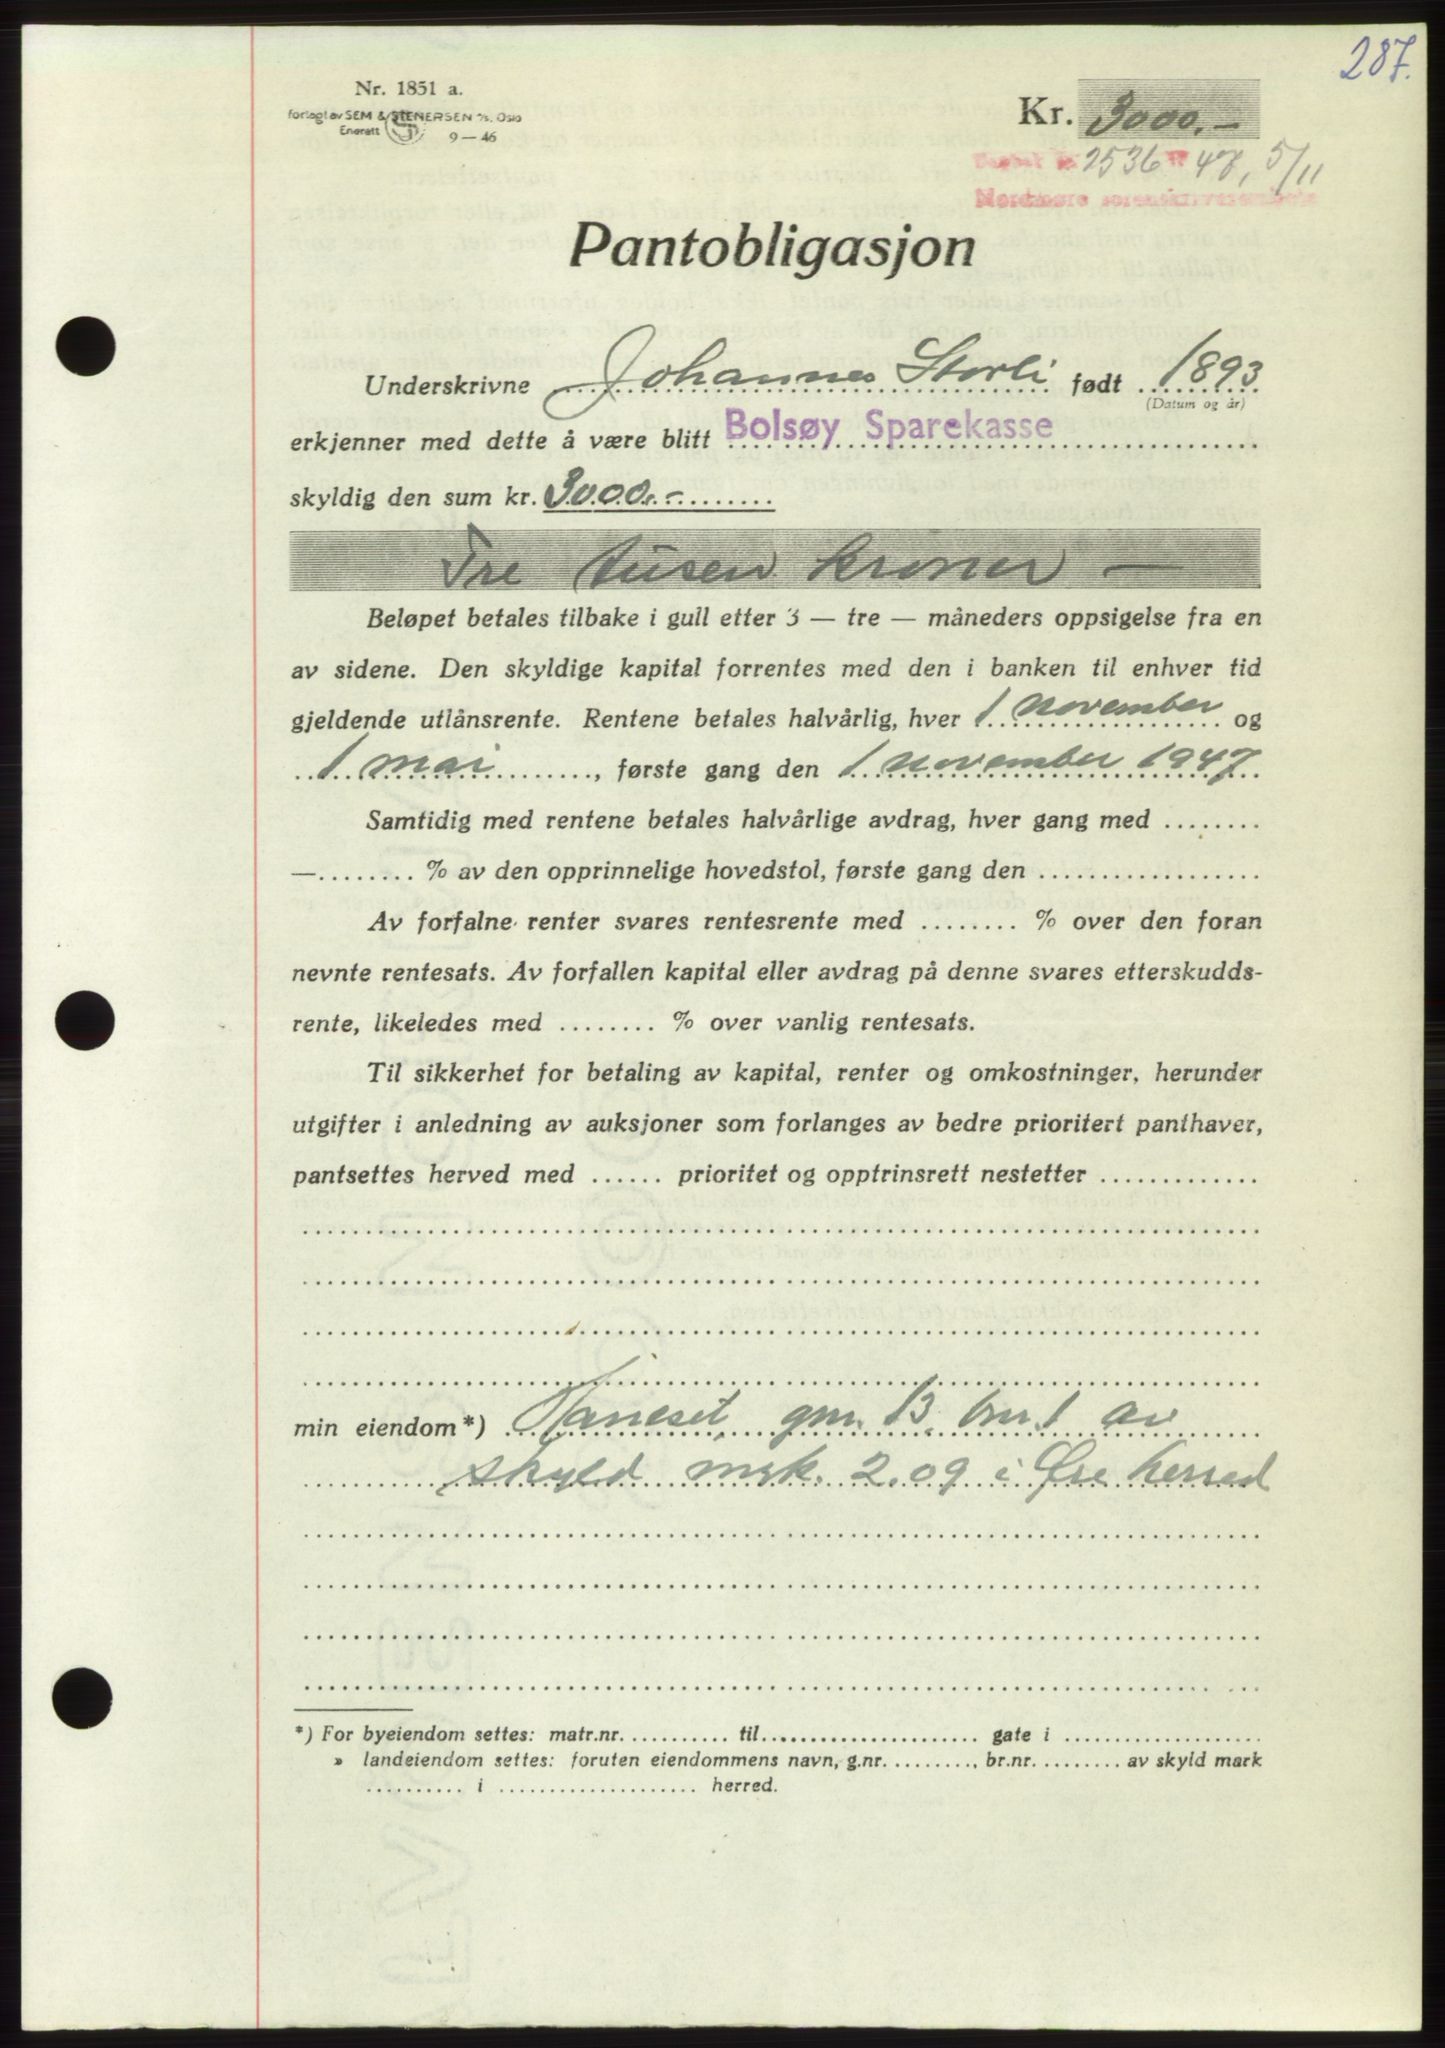 287.
Nr. 1851 a.
forlagt av SEM & STENERSEN A/S. Oslo
Enerett 9 — 46
Kr. 3000.–
2536 47, 5/11
Nordmøre sorenskriverembete
Pantobligasjon
Underskrivne Johannes Storli født 1893
(Datum og år)
erkjenner med dette å være blitt Bolsøy Sparekasse
skyldig den sum kr. 3000.–
Tre tusen kroner —
Beløpet betales tilbake i gull etter 3 — tre — måneders oppsigelse fra en
av sidene. Den skyldige kapital forrentes med den i banken til enhver tid
gjeldende utlånsrente. Rentene betales halvårlig, hver 1 november og
1 mai , første gang den 1 november 1947
Samtidig med rentene betales halvårlige avdrag, hver gang med ........
—........ % av den opprinnelige hovedstol, første gang den ...................
Av forfalne renter svares rentesrente med ........ % over den foran
nevnte rentesats. Av forfallen kapital eller avdrag på denne svares etterskudds-
rente, likeledes med ........ % over vanlig rentesats.
Til sikkerhet for betaling av kapital, renter og omkostninger, herunder
utgifter i anledning av auksjoner som forlanges av bedre prioritert panthaver,
pantsettes herved med ...... prioritet og opptrinsrett nestetter .............
min eiendom*) gnr. 13, bnr. 1 av
skyld mrk. 2.09 i Øre herred
*) For byeiendom settes: matr.nr. ........... til...................... gate i ....................
» landeiendom settes: foruten eiendommens navn, g.nr. ........., br.nr. ......... av skyld mark
.......... i .................... herred.